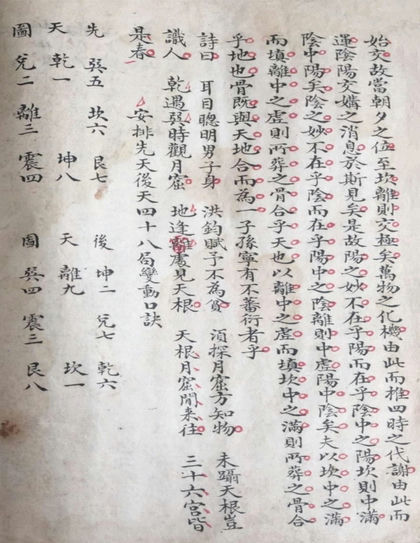 始交故當朝夕之位至坎離則交極矣萬物之化機由此而推四時之代謝由此而
運陰陽交媾之消息於斯見矣是故陽之妙不在乎陽而在乎陰中之陽坎則中滿
陰中陽矣陰之妙不在乎陰而在乎陽中之陰離則中虛陽中陰矣夫以坎中之滿
而填離中之虛則所葬之骨合乎天也以離中之虛而填坎中之滿則所葬之骨合
乎地也骨既與天地合而為一子孫寧有不蕃衍者乎
詩曰 耳目聰明男子身 洪鈞賦予不為貧 須探月窟方知物 未躡天根豈
識人 乾遇巽時觀月窟 地逢處見天根 天根月窟閒來往 三十六宮皆
是春 安排先天後天四十八局變動口訣
先 巽五 坎六 艮七 後 坤二 兌七 乾六
天 乾一 坤八 天 離九 坎一
圖 兌二 離三 震四 圖 巽四 震三 艮八